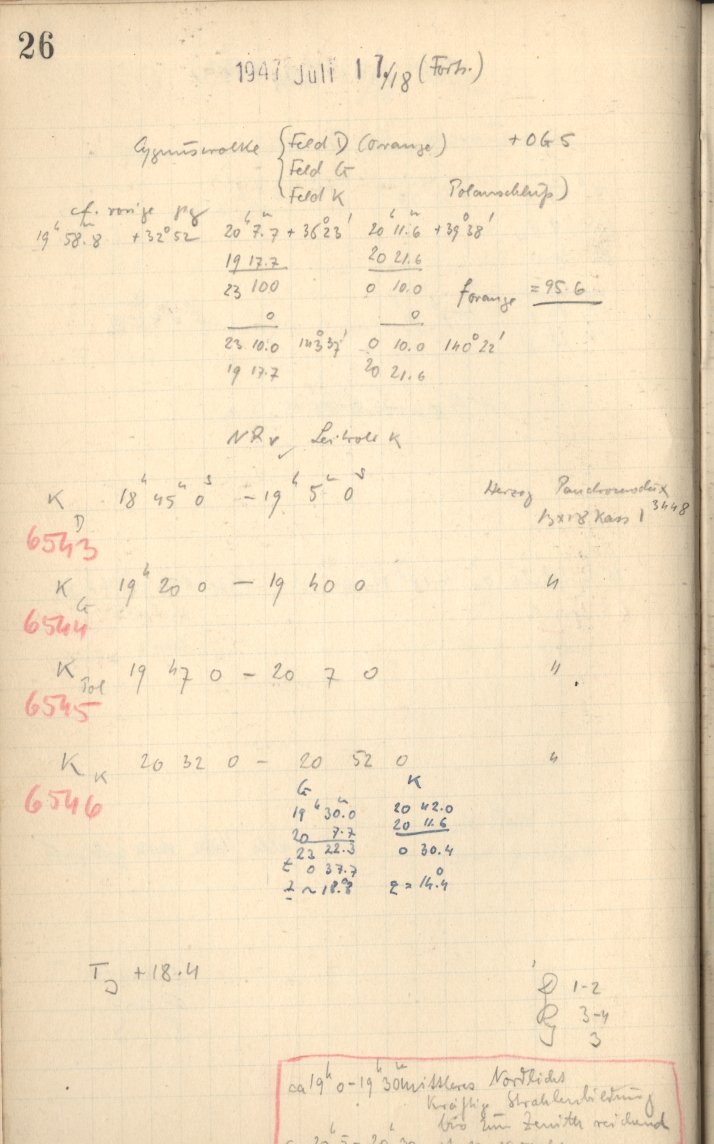 26
1947 Juli 17./18 (Forts.)
Cygnuswolke { Feld D (Orange) +OG5
Feld G
Feld K Polanschluß)
cf. vorige pg
19ʰ 58.ᵐ8 +32°52 20ʰ 7.ᵐ7 +36°23' 20ʰ 11.ᵐ6 +39°38'
19 17.7 20 21.6
23 10.0 0 10.0 forange = 95.6
0 0
23 10.0 143°37' 0 10.0 140°22'
19 17.7 20 21.6
Leitrohr K
K D 18ʰ 45ᵐ 0ˢ – 19ʰ 5ᵐ 0ˢ Herzog
6543 13x18 Kass 1 3448
K G 19ʰ 20 0 – 19 40 0 "
6544
K Pol 19 47 0 – 20 7 0 "
6545
K K 20 32 0 – 20 52 0 "
6546
G K
19ʰ 30.ᵐ0 20 42.0
20 7.7 20 11.6
23 22.3 0 30.4
t 0 37.7
z ~ 18.°8 z = 14.°4
T +18.4
1-2
3-4
3
ca 19ʰ 0 – 19ʰ 30ᵐ mittleres Nordlicht
kräftige Strahlenbildung
bis zum Zenith reichend